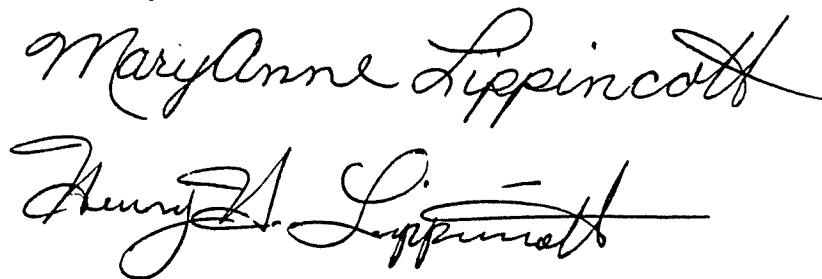 MaryAnne Lippincott
Henry H. Lippincott